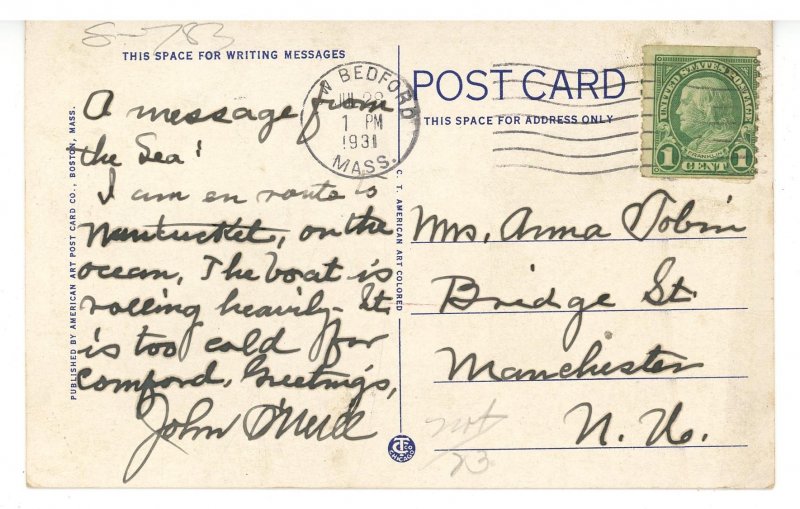 S-783
THIS SPACE FOR WRITING MESSAGES
A message from
the Sea!
I am en route to
Nantucket, on the
ocean. The boat is
rolling heavily - It
is too cold for
comford. Greetings,
John O'Neill
PUBLISHED BY AMERICAN ART POST CARD CO., BOSTON, MASS.
C. T. AMERICAN ART COLORED
N BEDFORD
1 PM
1931
MASS.
POST CARD
THIS SPACE FOR ADDRESS ONLY
UNITED STATES POSTAGE
FRANKLIN
1 CENT 1
Mrs. Anna Tobin
Bridge St.
Manchester
N. H.
CHICAGO